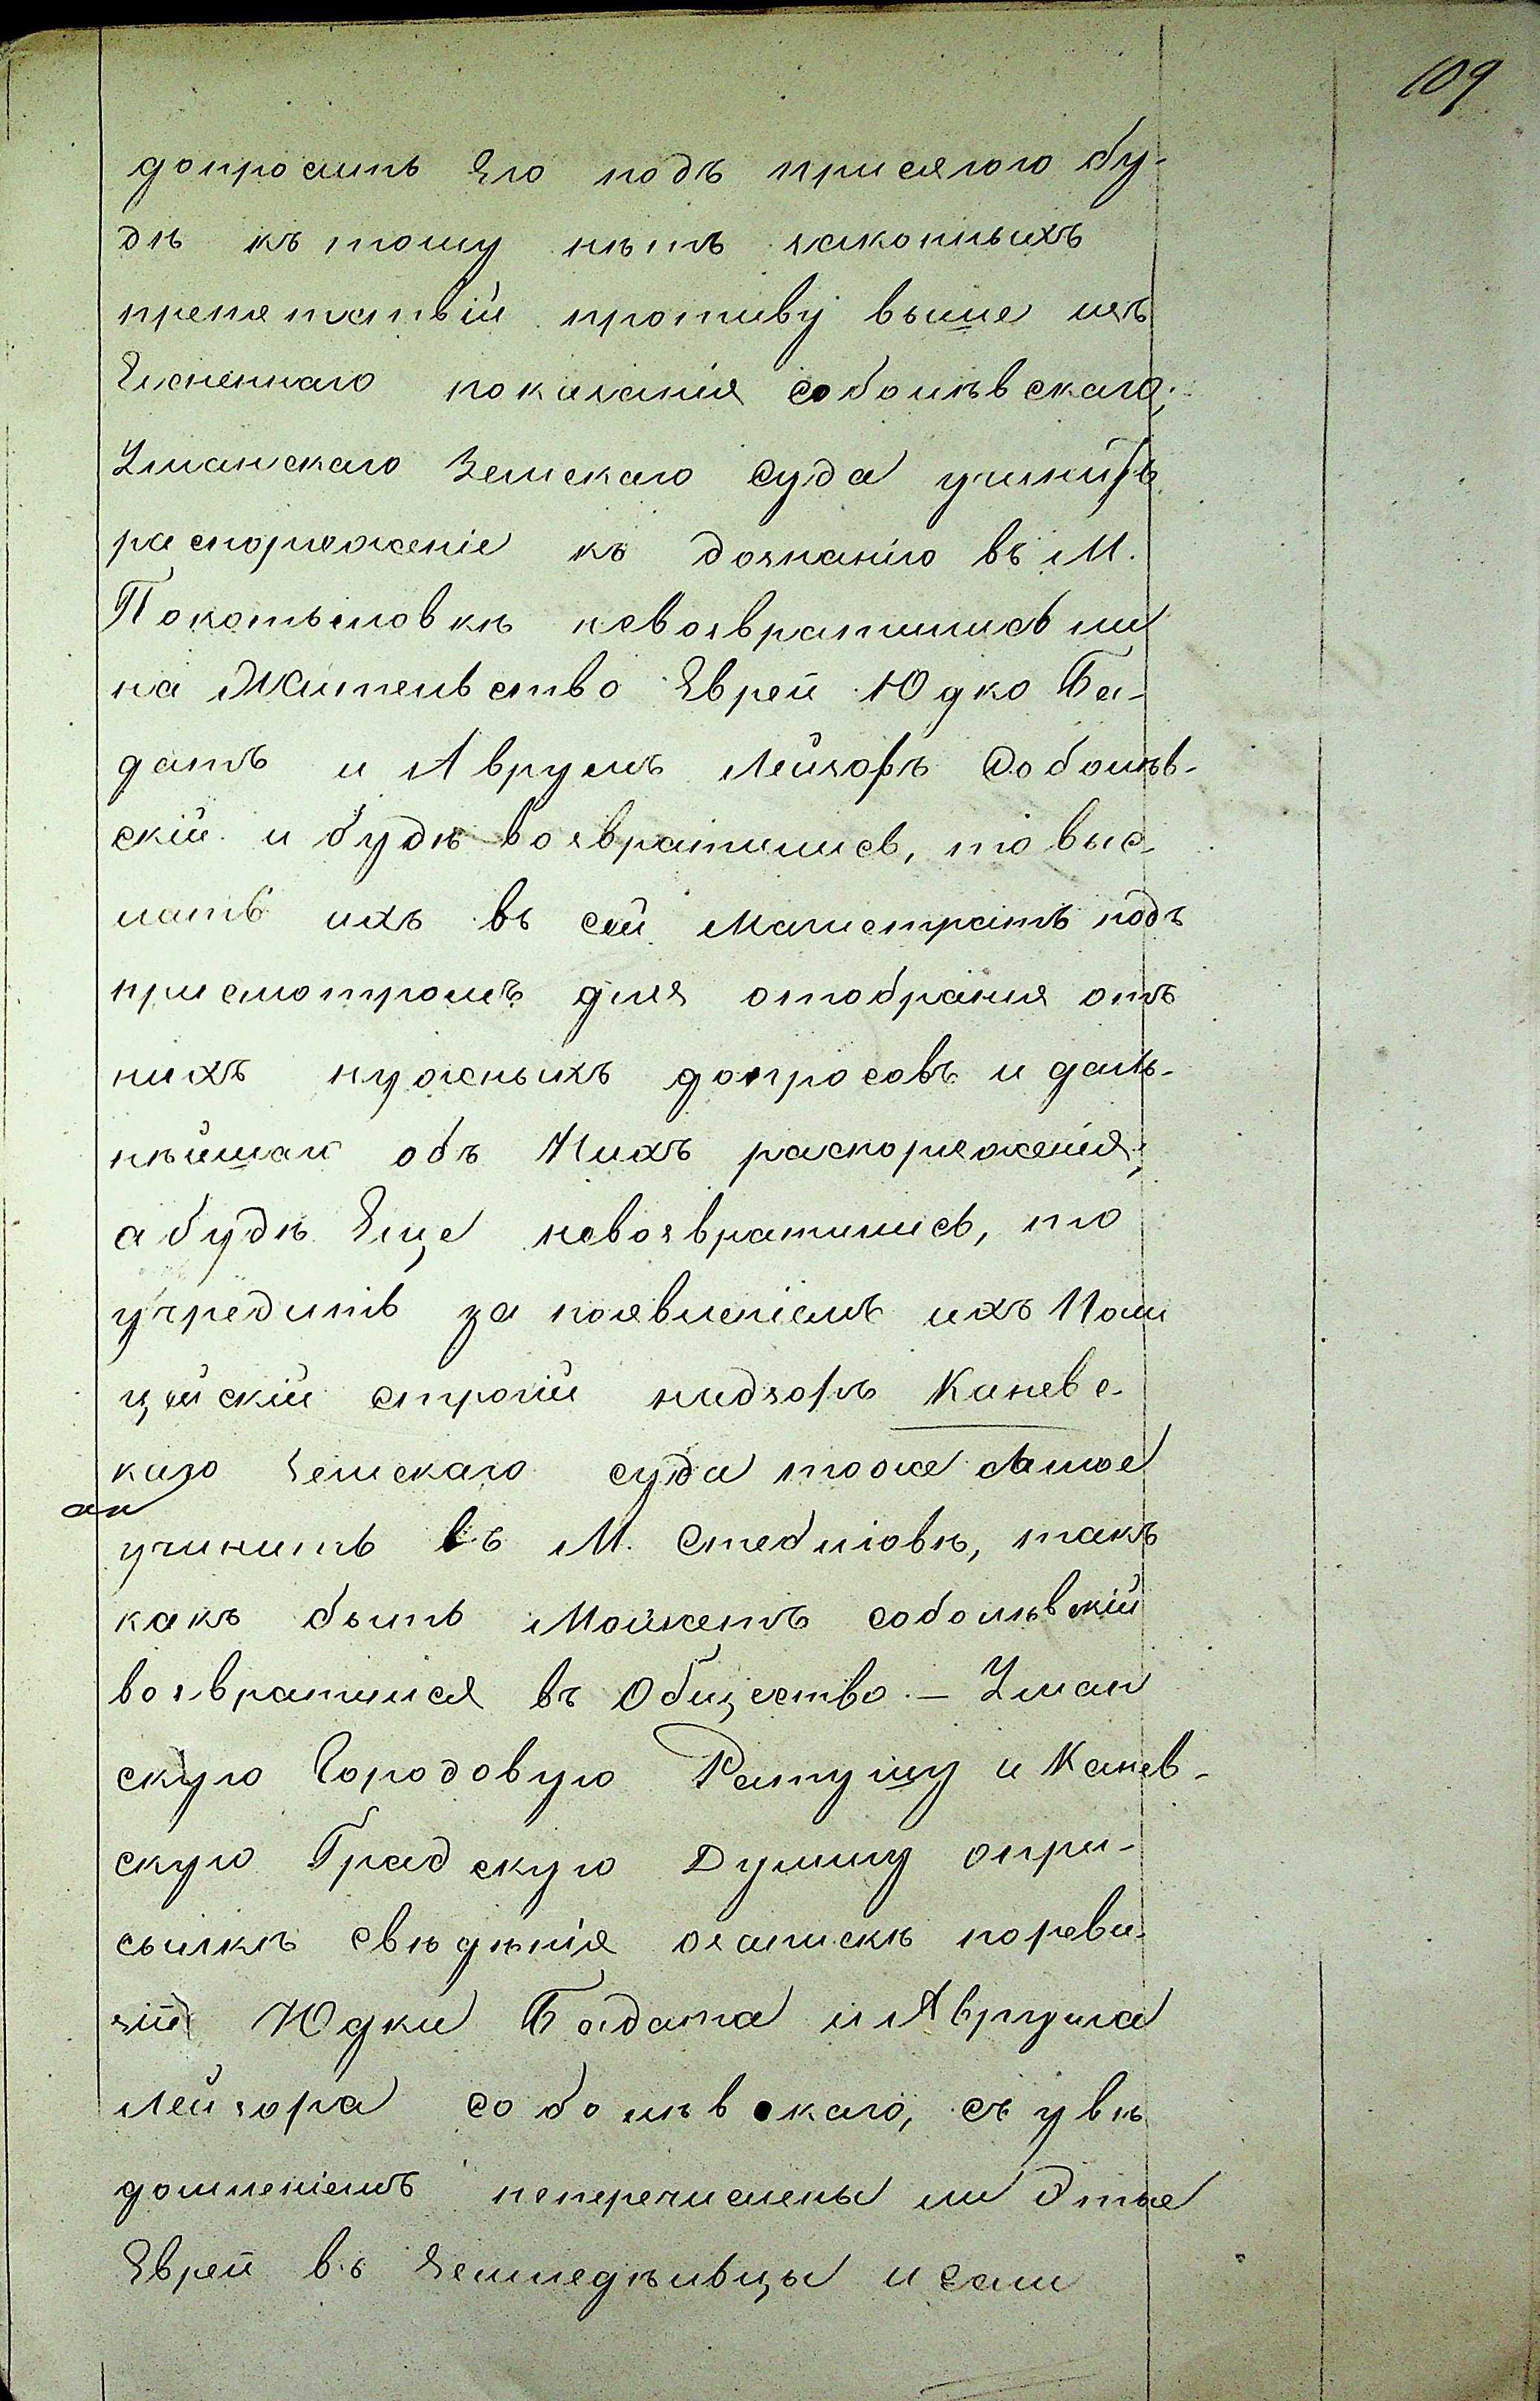 109
допросить Его подъ присягою бу-
дѣ къ тому нѣтъ законныхъ
препятствій противу выше изъ
Ясненнаго показанія Соболѣвскаго;
Уманскаго Земскаго Суда учинить
распоряженіе къ дознанію въ М.
Покотыловкѣ невозвратились ли
на Жительство Еврей Юдко Ба-
датъ и Аврумъ Лейзоръ Соболѣв-
скій и будѣ возвратились, то выс-
лать ихъ въ сей Магистратъ подъ
присмотромъ для отобранія отъ
нихъ нужныхъ допросовъ и даль-
нѣйшаго объ Нихъ распоряженія;
а будѣ Еще невозвратились, то
учредить за появленіемъ ихъ Поли
цейскій строгій надзоръ Каневс-
каго Земскаго суда тоже самое
учинить въ М. Стебліовѣ, такъ
какъ быть Можетъ Соболѣвскій
возвратился въ Общество. — Уман
скую Городовую Ратушу и Канев-
скую Градскую Думу опри-
сылкѣ свѣдѣнія озапискѣ пореви-
зіи Юдки Бадата и Аврума
Лейзора Соболѣвскаго, съ увѣ
домленіемъ неперечислены ли Этые
Еврей въ Земледѣльцы и сами